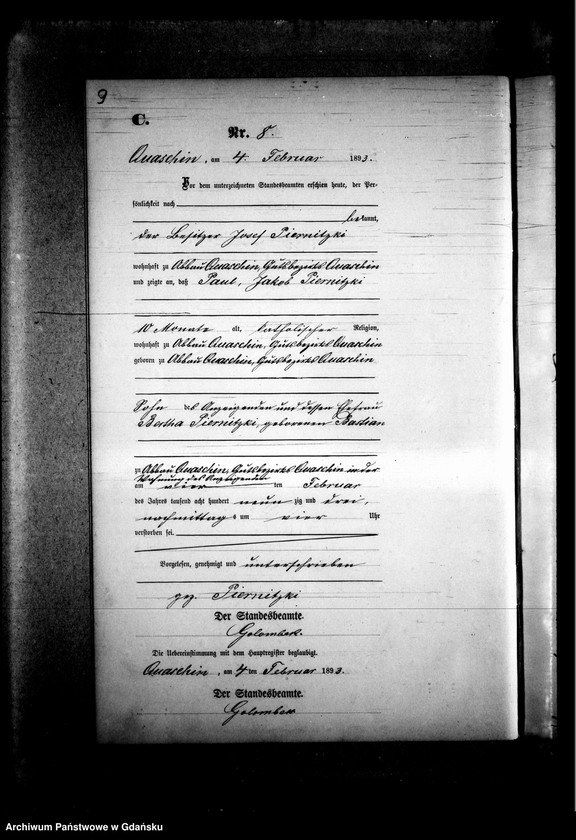 9
C.
Nr. 8.
Quaschin, am 4. Februar 1893.
Vor dem unterzeichneten Standesbeamten erschien heute, der Per-
sönlichkeit nach
bekannt,
der Besitzer Josef Piernitzki
wohnhaft zu Abbau Quaschin, Gutsbezirks Quaschin
und zeigte an, daß Paul, Jakob Piernitzki
10 Monate alt, katholischer Religion,
wohnhaft zu Abbau Quaschin, Gutsbezirks Quaschin
geboren zu Abbau Quaschin, Gutsbezirks Quaschin
Sohn des Anzeigenden und dessen Ehefrau
Bertha Piernitzki, geborenen Bastian
zu Abbau Quaschin, Gutsbezirks Quaschin in der
Wohnung des Anzeigenden
am vier ten Februar
des Jahres tausend acht hundert neun zig und drei,
nachmittags um vier Uhr
verstorben sei.
Vorgelesen, genehmigt und unterschrieben
gez. Piernitzki
Der Standesbeamte.
Golombek.
Die Uebereinstimmung mit dem Hauptregister beglaubigt.
Quaschin, am 4 ten Februar 1893.
Der Standesbeamte.
Golombek
Archiwum Państwowe w Gdańsku